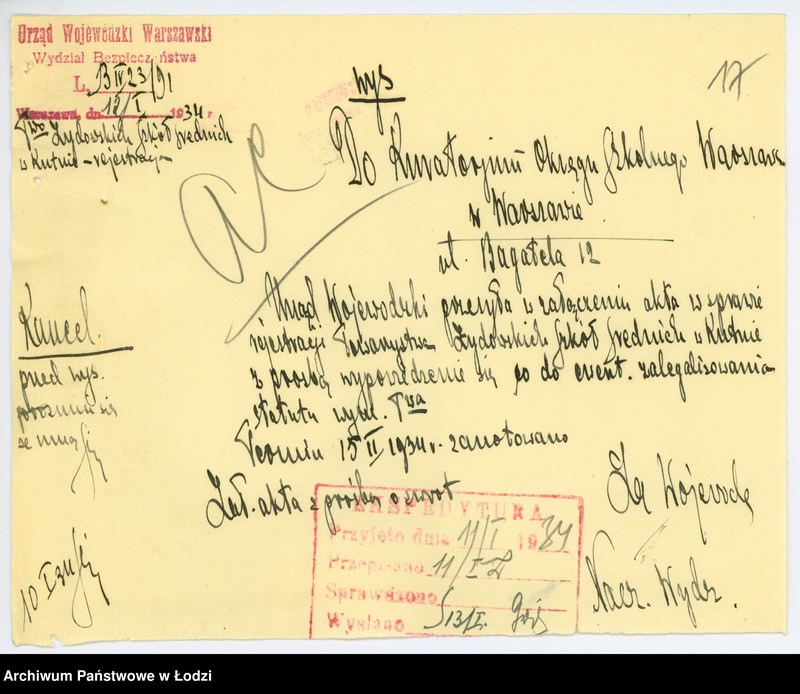 Urząd Wojewódzki Warszawski
Wydział Bezpieczeństwa
L. BIV 23/91
Warszawa, dn. 12/I 1934 r
Two Żydowskich Szkół Średnich
w Kutnie – rejestracja
wys
17
Do Kuratorjum Okręgu Szkolnego Warszawsk
w Warszawie.
ul. Bagatela 12
Urząd Wojewódzki przesyła w załączeniu akta w sprawie
rejestracji Towarzystwa Żydowskich Szkół Średnich w Kutnie
z prośbą wypowiedzenie się co do event. zalegalizowania
statutu wym. Twa
Termin 15 II 1934 r. zanotowano
Zał. akta z prośbą o zwrot
Kancel.
przed wys.
porozum się
ze mną
10 I 34
Za Wojewodę
Nacz. Wydz.
EKSPEDYTURA
Przyjęto dnia 11/I 1934
Przepisano 11/I
Sprawdzono
Wysłano 13/I.
Archiwum Państwowe w Łodzi